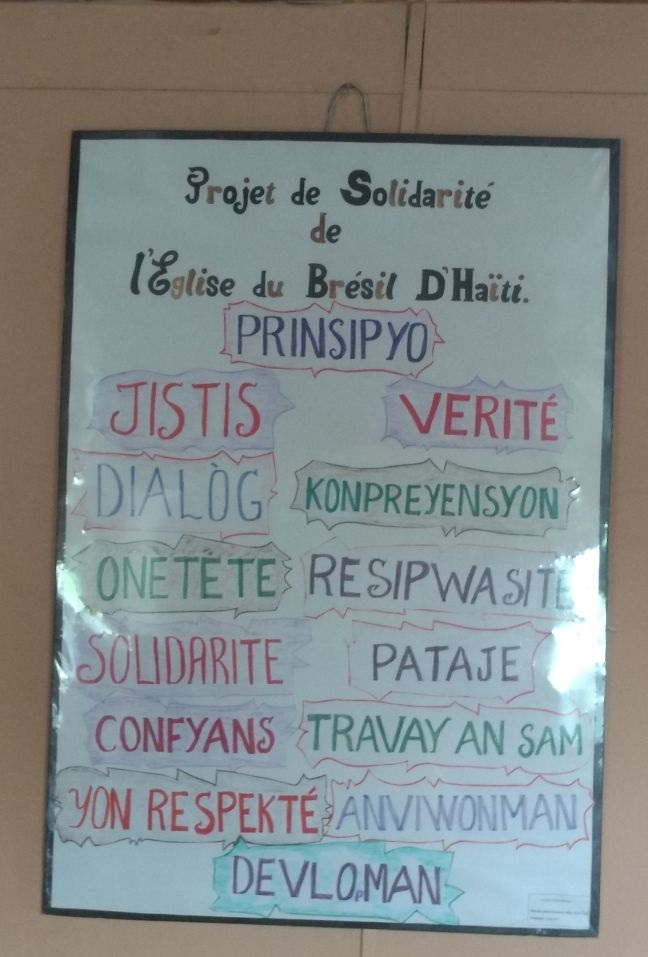 Projet de Solidarité
de
l'Eglise du Brésil D'Haïti.
PRINSIPYO
JISTIS VERITÉ
DIALÒG KONPREYENSYON
ONÈTETE RESIPWASITE
SOLIDARITE PATAJE
CONFYANS TRAVAY AN SAM
YON RESPEKTÉ ANVIWONMAN
DEVLOpMAN